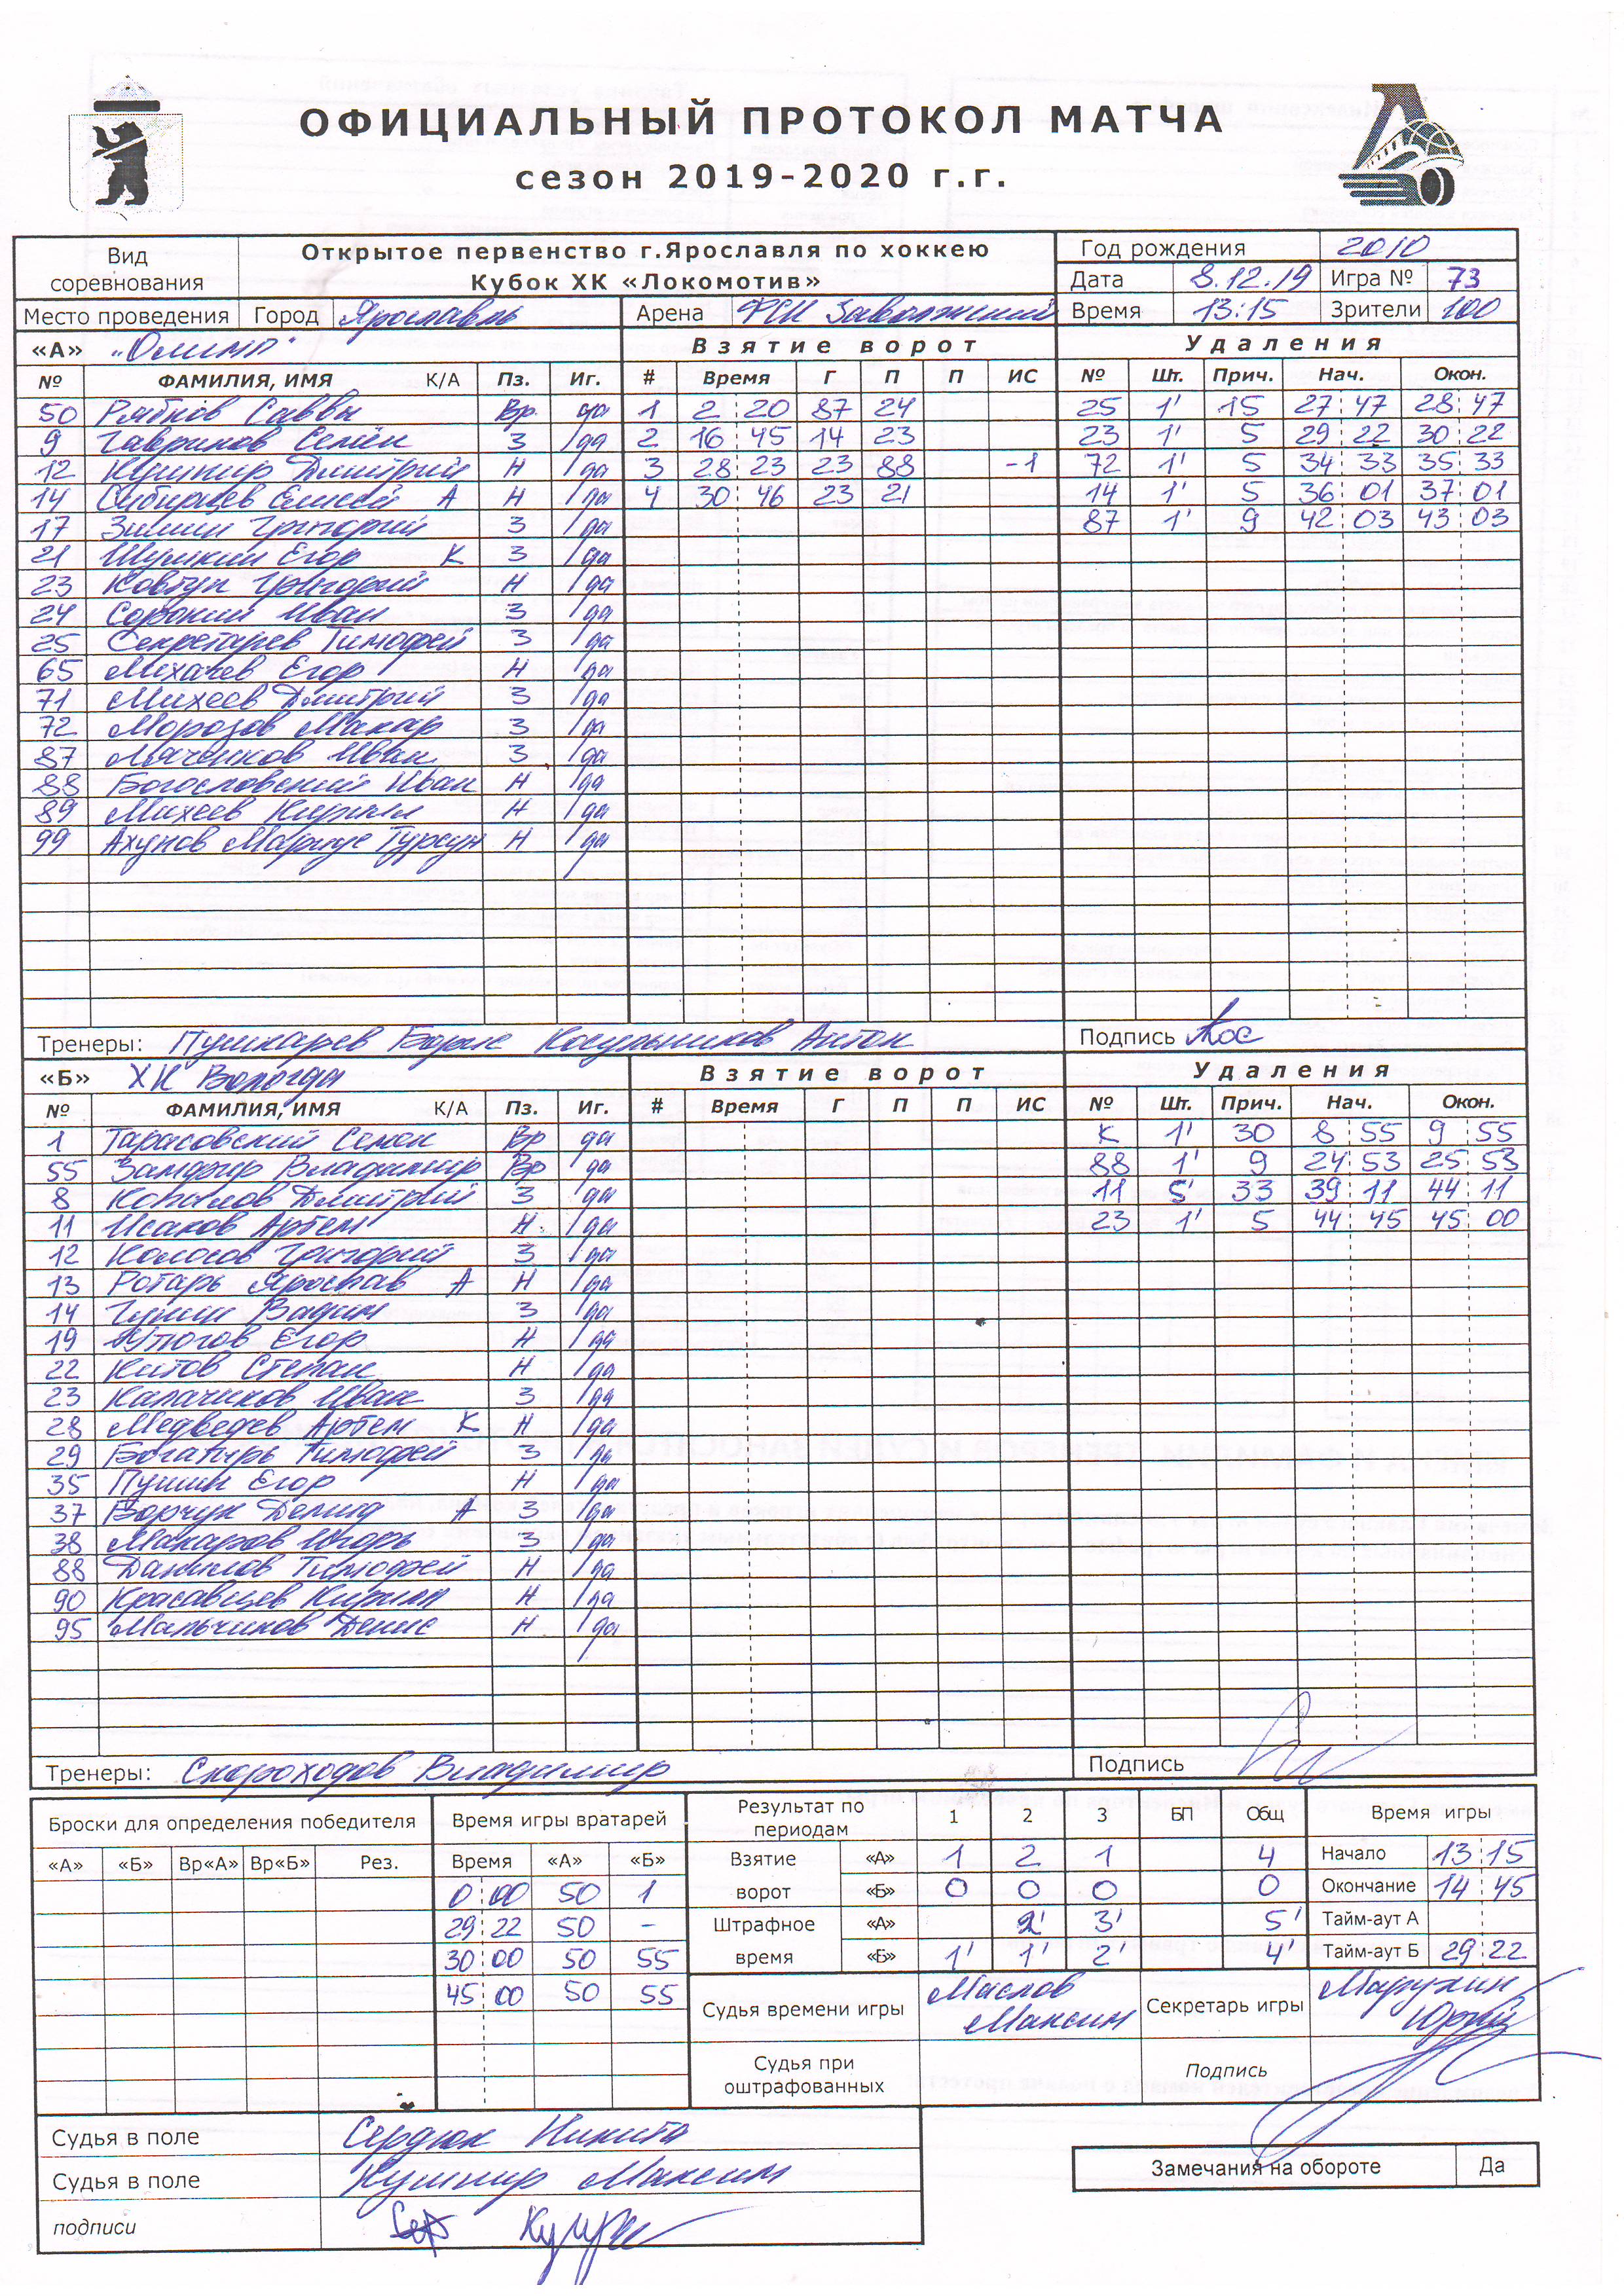 ОФИЦИАЛЬНЫЙ ПРОТОКОЛ МАТЧА
сезон 2019-2020 г.г.
Вид соревнования Открытое первенство г.Ярославля по хоккею Кубок ХК «Локомотив» Год рождения 2010
Дата 8.12.19 Игра № 73
Место проведения Город Ярославль Арена ФСК Заволжский Время 13:15 Зрители 100
«А» "Олимп" Взятие ворот Удаления
№ ФАМИЛИЯ, ИМЯ К/А Пз. Иг. # Время Г П П ИС № Шт. Прич. Нач. Окон.
50 Рябков Савва Вр. да 1 2 20 87 24 25 1' 15 27 47 28 47
9 Гаврилов Семён З да 2 16 45 14 23 23 1' 5 29 22 30 22
12 Кушнир Дмитрий Н да 3 28 23 23 88 -1 72 1' 5 34 33 35 33
14 Сибирцев Елисей А Н да 4 30 46 23 21 14 1' 5 36 01 37 01
17 Зимин Григорий З да 87 1' 9 42 03 43 03
21 Шумкин Егор К З да
23 Ковтун Григорий Н да
24 Сорокин Иван З да
25 Секретарев Тимофей З да
65 Михачев Егор Н да
71 Михеев Дмитрий З да
72 Морозов Макар З да
87 Мяченков Иван З да
88 Богословский Иван Н да
89 Михеев Кирилл Н да
99 Ахунов Марлус Турсун Н да
Тренеры: Пушкарев Борис Косульников Антон Подпись
«Б» ХК Вологда Взятие ворот Удаления
№ ФАМИЛИЯ, ИМЯ К/А Пз. Иг. # Время Г П П ИС № Шт. Прич. Нач. Окон.
1 Тарасовский Семен Вр да К 1' 30 8 55 9 55
55 Замфир Владимир Вр да 88 1' 9 24 53 25 53
8 Копылов Дмитрий З да 11 5' 33 39 11 44 11
11 Исаков Артем Н да 23 1' 5 44 45 45 00
12 Колосов Григорий З да
13 Ротарь Ярослав А Н да
14 Гунин Вадим З да
19 Утюгов Егор Н да
22 Китов Степан Н да
23 Калачиков Иван З да
28 Медведев Артем К Н да
29 Богатырь Тимофей З да
35 Пушин Егор Н да
37 Борчук Демид А З да
38 Макаров Игорь З да
88 Данилов Тимофей Н да
90 Красавцев Кирилл Н да
95 Мальчиков Денис Н да
Тренеры: Скороходов Владимир Подпись
Броски для определения победителя Время игры вратарей Результат по периодам 1 2 3 БП Общ Время игры
«А» «Б» Вр«А» Вр«Б» Рез. Время «А» «Б» Взятие ворот «А» 1 2 1 4 Начало 13 15
0 00 50 1 «Б» 0 0 0 0 Окончание 14 45
29 22 50 - Штрафное время «А» 2' 3' 5' Тайм-аут А
30 00 50 55 «Б» 1' 1' 2' 4' Тайм-аут Б 29 22
45 00 50 55 Судья времени игры Маслов Максим Секретарь игры Марухин Юрий
Судья при оштрафованных Подпись
Судья в поле Сердюк Никита
Судья в поле Кушнир Максим
подписи
Замечания на обороте Да